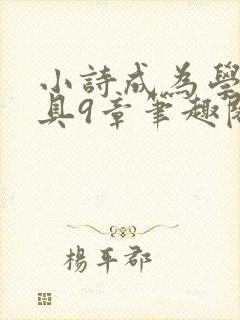 小詩成為學
具9章筆趣閱
楊平郡